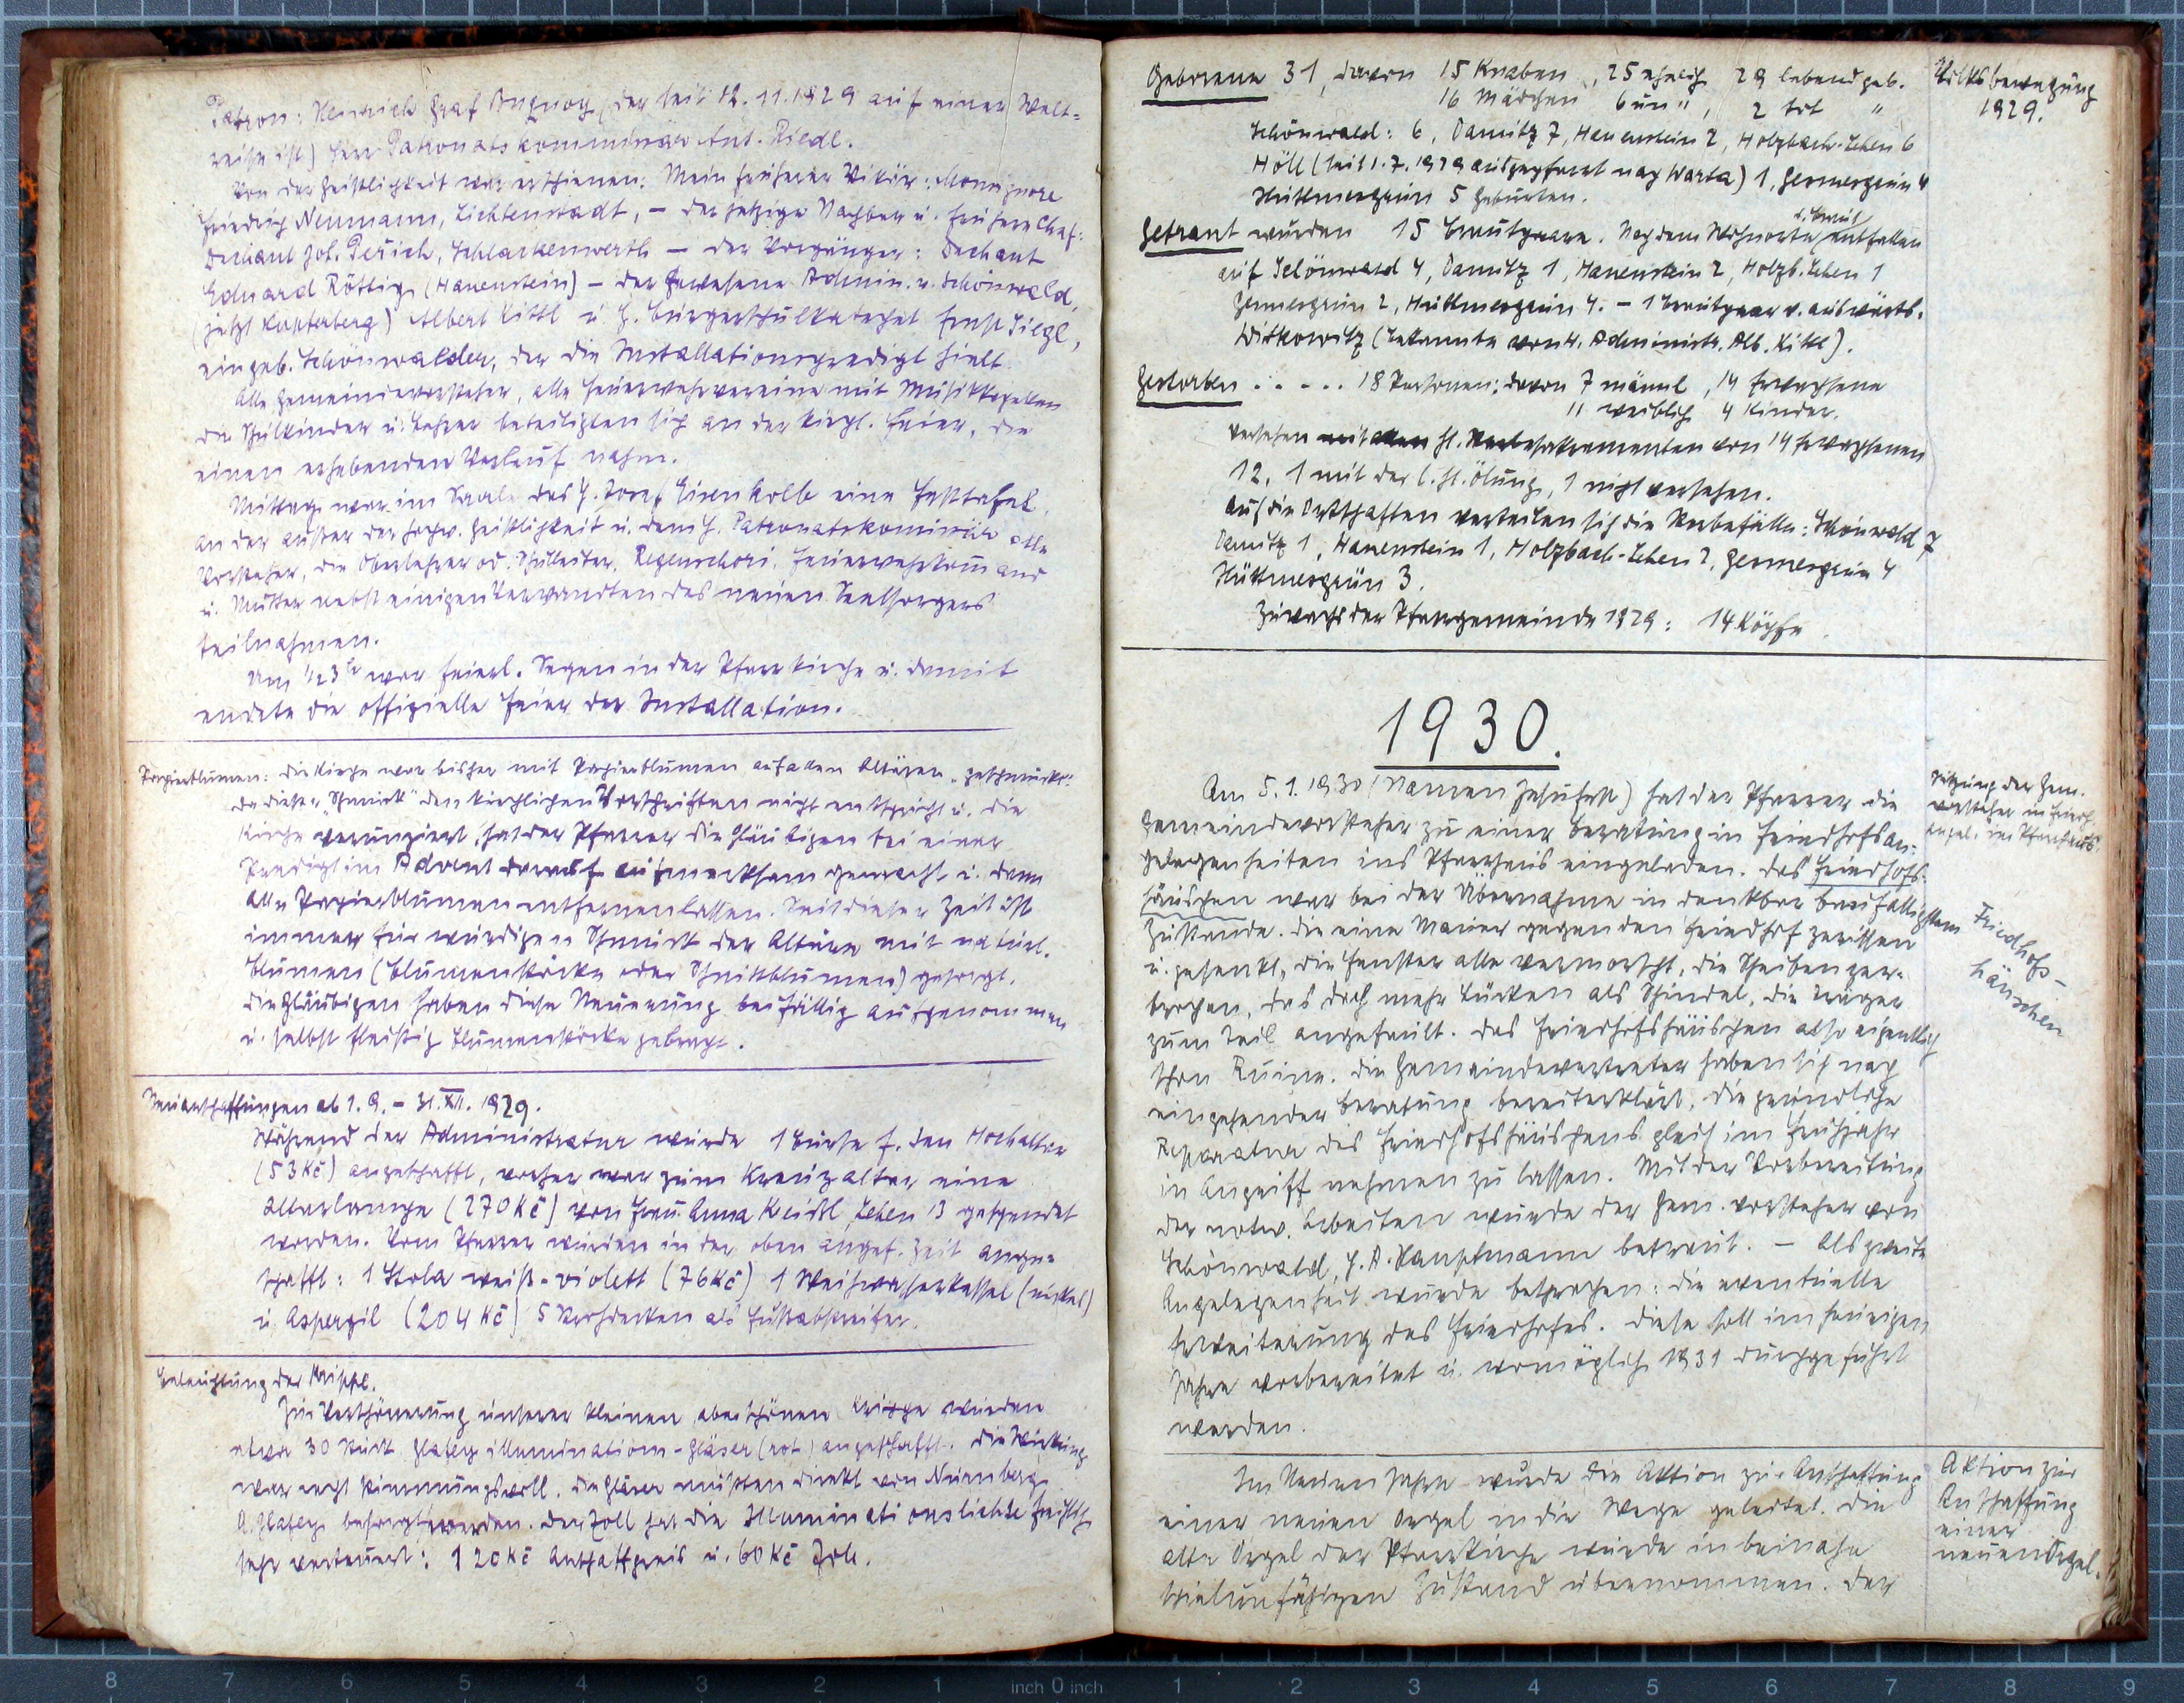 Patron: Heinrich Graf Buquoy (der seit 12.11.1929 auf einer Welt=
reise ist) Herr Patronatskommissär Ant. Riedl.
Von der Geistlichkeit war erschienen: Mein früherer Vikär: Monsignore
Friedrich Neumann, Lichtenstadt, – der jetzige Nachbar u. frühere Chef:
Dechant Joh. Peřich, Schlackenwerth – der Vorgänger: Dechant
Eduard Röttig (Hauenstein) – der gewesene Admin. v. Schönwald,
(jetzt Kupferberg) Albert Kittl u. H. Bürgerschulkatechet Ernst Siegl,
ein geb. Schönwalder, der die Installationspredigt hielt.
Alle Gemeindevorsteher, alle Feuerwehrvereine mit Musikkapellen
die Schulkinder u. Lehrer beteiligten sich an der kirchl. Feier, die
einen erhebenden Verlauf nahm.
Mittag war im Saale des H. Josef Eisenkolb eine Festtafel,
an der außer der hochw. Geistlichkeit u. dem H. Patronatskommissär alle
Vorsteher, die Oberlehrer od. Schulleiter, Regenschori, Feuerwehrkommand
u. Mutter nebst einigen Verwandten des neuen Seelsorgers
teilnahmen.
Um ½3h war feierl. Segen in der Pfarrkirche u. damit
endete die offizielle Feier der Installation.
Papierblumen: Die Kirche war bisher mit Papierblumen auf allen Altären „geschmückt“.
Da dieser „Schmuck“ den kirchlichen Vorschriften nicht entspricht u. die
Kirche verunziert, hat der Pfarrer die Gläubigen bei einer
Predigt im Advent darauf aufmerksam gemacht u. dann
alle Papierblumen entfernen lassen. Seit dieser Zeit ist
immer für würdigen Schmuck der Altäre mit natürl.
Blumen (Blumenstöcke oder Schnittblumen) gesorgt.
Die Gläubigen haben diese Neuerung beifällig aufgenommen
u. selbst fleißig Blumenstöcke gebracht.
Neuanschaffungen ab 1.9. – 31.XII. 1929.
Während der Administratur wurde 1 Burse f. den Hochaltar
(53 Kč) angeschafft, vorher war zum Kreuzaltar eine
Altarlampe (270 Kč) von Frau Anna Keißl Lehen 13 gespendet
worden. Vom Pfarrer wurden in der oben angef. Zeit ange=
schafft: 1 Stola weiß-violett (76 Kč) 1 Weihwasserkessel (nickel)
u. Aspergil (204 Kč) 5 als Fußabstreifer.
Beleuchtung der Krippe.
Zur Verschönerung unserer kleinen, aber schönen Krippe wurden
etwa 30 Stück Illuminations-Gläser (rot) angeschafft. Die Wirkung
war recht stimmungsvoll. Die Gläser mußten direkt von Nürnberg
besorgt werden. Der Zoll hat die Illuminationslichte freilich
sehr verteuert: 120 Kč Anschaffpreis u. 60 Kč Zoll.
Geborene 31, davon 15 Knaben, 25 ehelich 29 lebend geb.
16 Mädchen 6 un ", 2 tot "
Schönwald: 6, Damitz 7, Hauenstein 2, Holzbach-Lehen 6
Höll (seit 1.7.1929 ausgepfarrt nach Warta) 1, Gesmesgrün 4
Hüttmesgrün 5 Geburten.
Volksbewegung
1929.
Getraut wurden 15 Brautpaare. Nach dem Wohnorte d. Braut entfallen
auf Schönwald 4, Damitz 1, Hauenstein 2, Holzb. Lehen 1
Gesmesgrün 2, Hüttmesgrün 4. – 1 Brautpaar v. auswärts.
Witkowitz (Bekannte von H. Administr. Alb. Kittl).
Gestorben ..... 18 Personen: davon 7 männl, 14 Erwachsene
11 weiblich 4 Kinder.
Versehen mit hl. Sterbesakramenten von 14 Erwachsenen
12, 1 mit der l. hl. Ölung, 1 nicht versehen.
Auf die Ortschaften verteilen sich die Sterbefälle: Schönwald 7
Damitz 1, Hauenstein 1, Holzbach-Lehen 2, Gesmesgrün 4
Hüttmesgrün 3.
Zuwachs der Pfarrgemeinde 1929: 14 Köpfe.
1930.
Am 5.1.1930 (Namen Jesu Fest) hat der Pfarrer die
Gemeindevorsteher zu einer Beratung in Friedhofsan=
gelegenheiten ins Pfarrhaus eingeladen. Das Friedhofs=
häuschen war bei der Übernahme in denkbar baufälligstem
Zustande. Die eine Mauer gegen den Friedhof zerissen
u. gesenkt, die Fenster alle vermorscht, die Scheiben zer=
brochen, das Dach mehr Lücken als Schindel, die Träger
zum Teil angefault. Das Friedhofshäuschen also eigentlich
schon Ruine. Die Gemeindevertreter haben sich nach
eingehender Beratung bereit erklärt, die gründliche
Reparatur des Friedhofshäuschens gleich im Frühjahr
in Angriff nehmen zu lassen. Mit der Vorbereitung
der notw. Arbeiten wurde der Gem. vorsteher von
Schönwald, H. A. Hauptmann betraut. – Als zweite
Angelegenheit wurde besprochen: die eventuelle
Erweiterung des Friedhofes. Diese soll im heurigen
Jahre vorbereitet u. womöglich 1931 durchgeführt
werden.
Sitzung der Gem.
vorsteher in Friedh.
angel. im Pfarrhaus.
Friedhofs-
häuschen
Im Neuen Jahre wurde die Aktion zur Anschaffung
einer neuen Orgel in die Wege geleitet. Die
alte Orgel der Pfarrkirche wurde in beinahe
spielunfähigen Zustand übernommen. Der
Aktion zur
Anschaffung
einer
neuen Orgel.
8 7 6 5 4 3 2 1 inch 0 inch 1 2 3 4 5 6 7 8 9